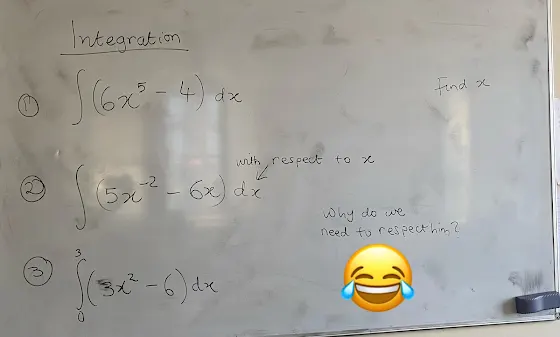 Integration
① ∫(6x⁵ - 4) dx
Find x
with respect to x
② ∫(5x⁻² - 6x) dx
Why do we
need to respect him?
③ ∫₀³(3x² - 6) dx